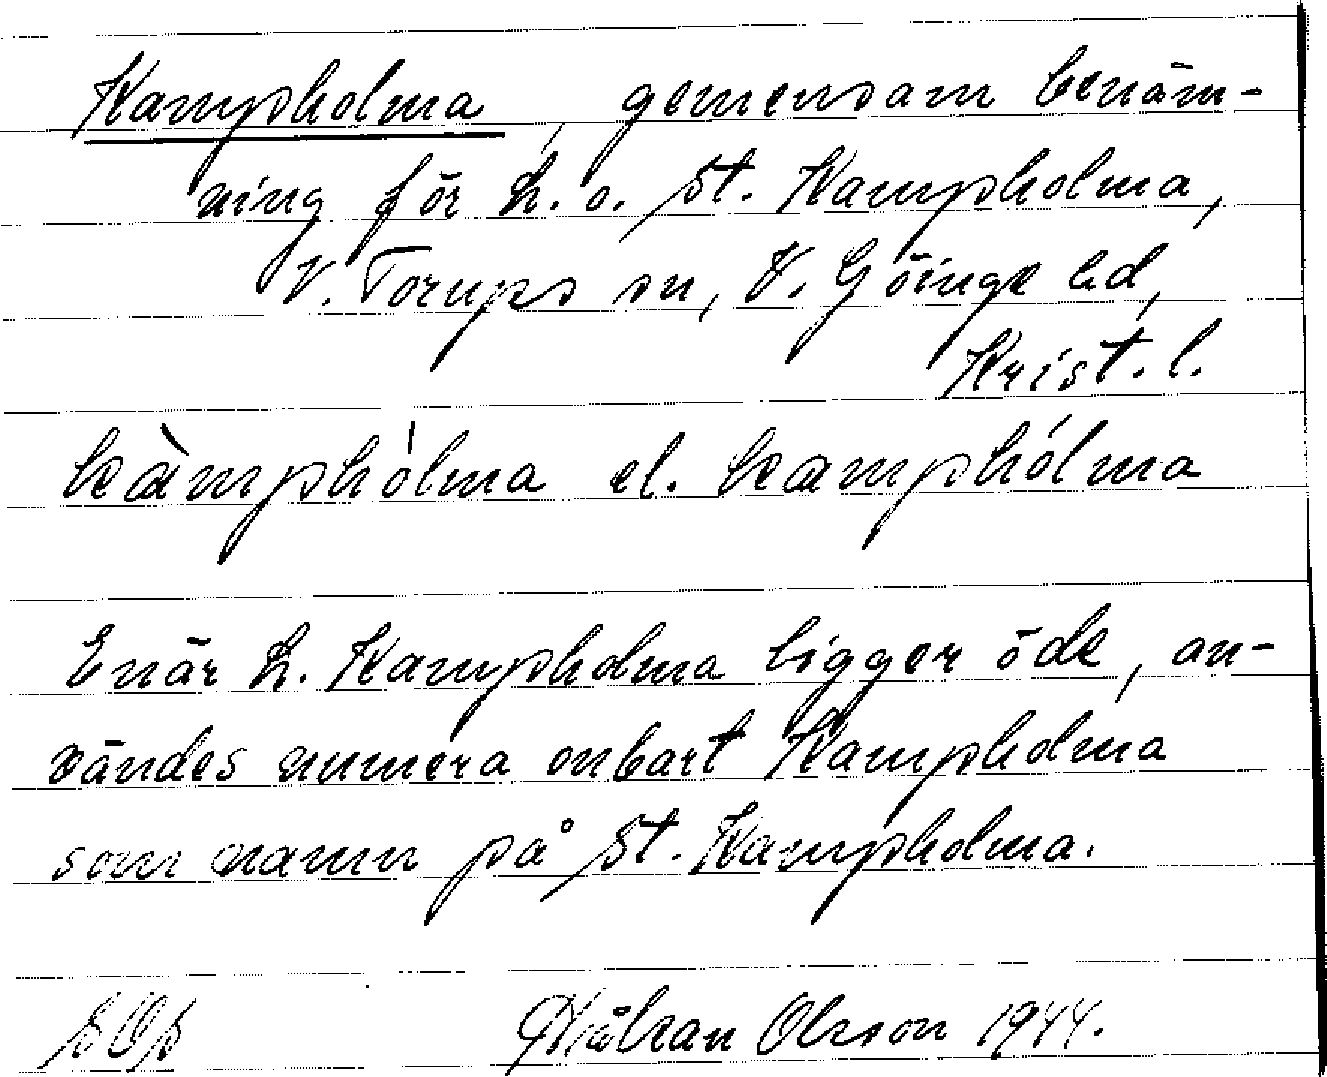 Kampholma, gemensam benäm-
ning för L. o. St. Kampholma,
V. Torups sn, V. Göinge hd,
Krist. l.
kàmphòlma el. kamphólma
Enär L. Kampholma ligger öde, an-
vändes numera enbart Kampholma
som namn på St. Kampholma.
Håkan Olsson 1944.